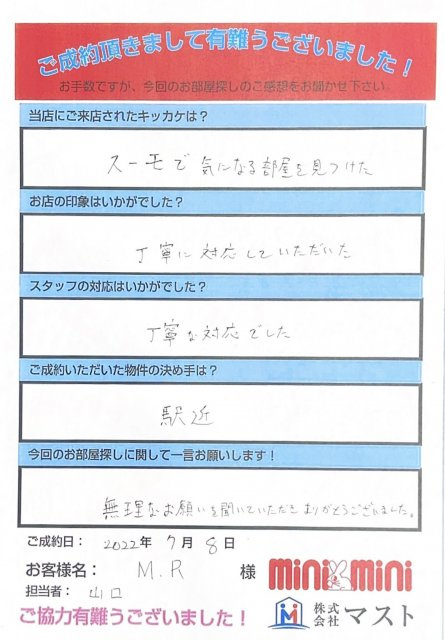 ご成約頂きまして有難うございました！
お手数ですが、今回のお部屋探しのご感想をお聞かせ下さい
当店にご来店されたキッカケは？
スーモで気になる部屋を見つけた
お店の印象はいかがでした？
丁寧に対応していただいた
スタッフの対応はいかがでした？
丁寧な対応でした
ご成約いただいた物件の決め手は？
駅近
今回のお部屋探しに関して一言お願いします！
無理なお願いを聞いていただきありがとうございました。
ご成約日： 2022年 7月 8日
お客様名： M.R 様
mini mini
担当者： 山口
株式会社マスト
ご協力有難うございました！